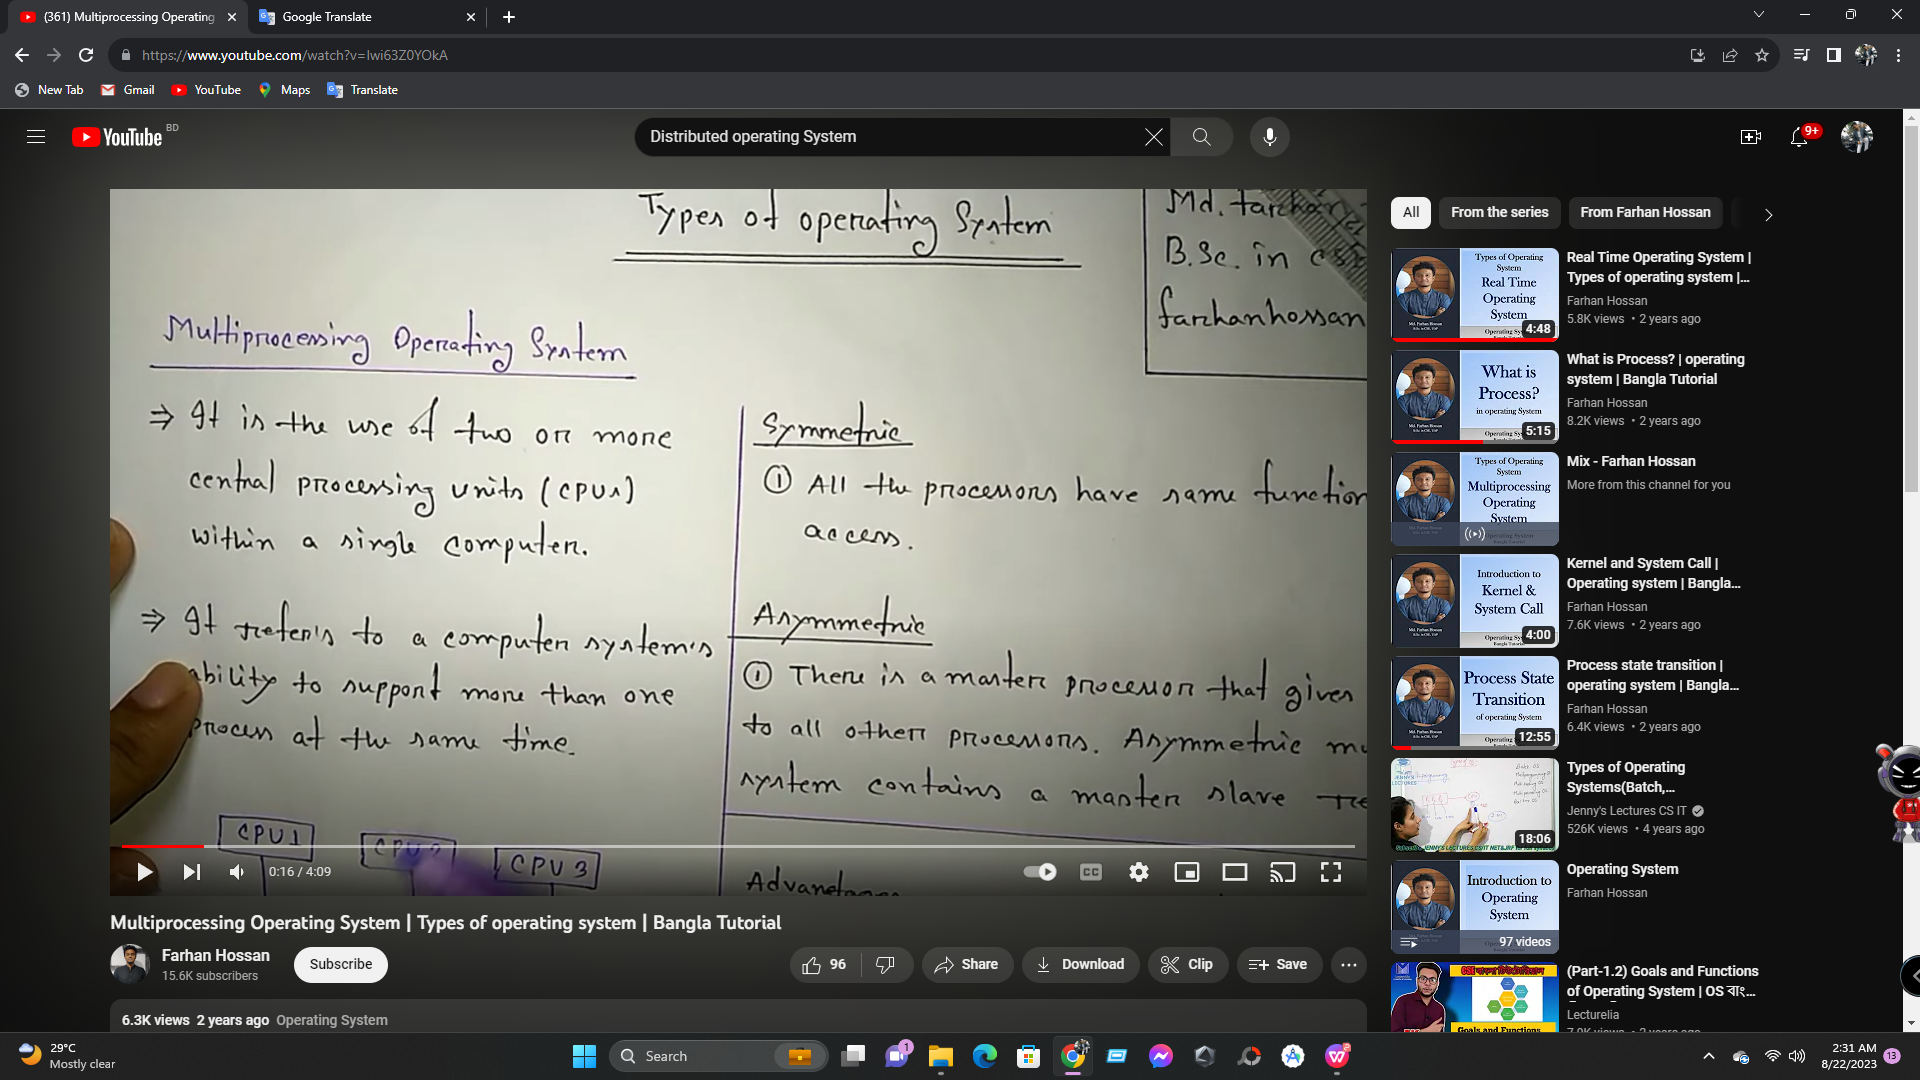 (361) Multiprocessing Operating
Google Translate
https://www.youtube.com/watch?v=Iwi63Z0YOkA
New Tab
Gmail
YouTube
Maps
Translate
YouTube BD
Distributed operating System
9+
Types of operating System
B.Sc. in
farhanhossan
Multiprocessing Operating System
⇒ It is the use of two or more
central processing units (CPUs)
within a single computer.
⇒ It refer's to a computer system's
ability to support more than one
process at the same time.
CPU1
CPU2
CPU3
Symmetric
① All the processors have same function
access.
Asymmetric
① There is a master processor that gives
to all other processors. Asymmetric
system contains a master slave
0:16 / 4:09
CC
Multiprocessing Operating System | Types of operating system | Bangla Tutorial
Farhan Hossan
15.6K subscribers
Subscribe
96
Share
Download
Clip
Save
6.3K views 2 years ago Operating System
All
From the series
From Farhan Hossan
Types of Operating
System
Real Time
Operating
System
4:48
Real Time Operating System |
Types of operating system |...
Farhan Hossan
5.8K views • 2 years ago
What is
Process?
in operating System
5:15
What is Process? | operating
system | Bangla Tutorial
Farhan Hossan
8.2K views • 2 years ago
Types of Operating
System
Multiprocessing
Operating
System
Mix - Farhan Hossan
More from this channel for you
Introduction to
Kernel &
System Call
4:00
Kernel and System Call |
Operating system | Bangla...
Farhan Hossan
7.6K views • 2 years ago
Process State
Transition
of operating System
12:55
Process state transition |
operating system | Bangla...
Farhan Hossan
6.4K views • 2 years ago
18:06
Types of Operating
Systems(Batch,...
Jenny's Lectures CS IT
526K views • 4 years ago
Introduction to
Operating
System
97 videos
Operating System
Farhan Hossan
Goals and Functions
(Part-1.2) Goals and Functions
of Operating System | OS বাং...
Lecturelia
29°C
Mostly clear
Search
1
2:31 AM
8/22/2023
13